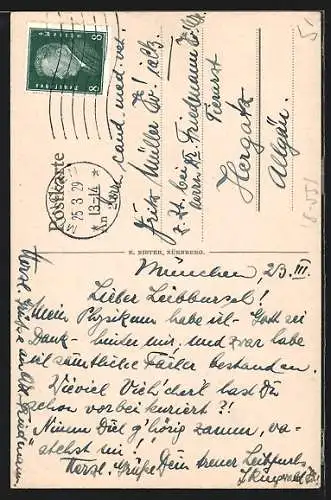 8 8
Postkarte
25.3.29
13-14
Herrn cand. med. vet.
Fritz Müller
z. Zt. bei
Herrn Dr. Friedemann
Tierarzt
Hergatz
Allgäu.
E. NISTER, NÜRNBERG.
München, 23. III.
Lieber Leibbursch!
Mein Physikum habe ich - Gott sei
Dank - hinter mir, und zwar habe
ich sämtliche Fächer bestanden.
Vieviel Viech'cherl hast Du
schon vorbei kuriert?!
Nimm Dich g'hörig zamm, va-
stehst mi!!
Herzl. Grüße Dein treuer Leibfuchs
Herzl. Grüße an